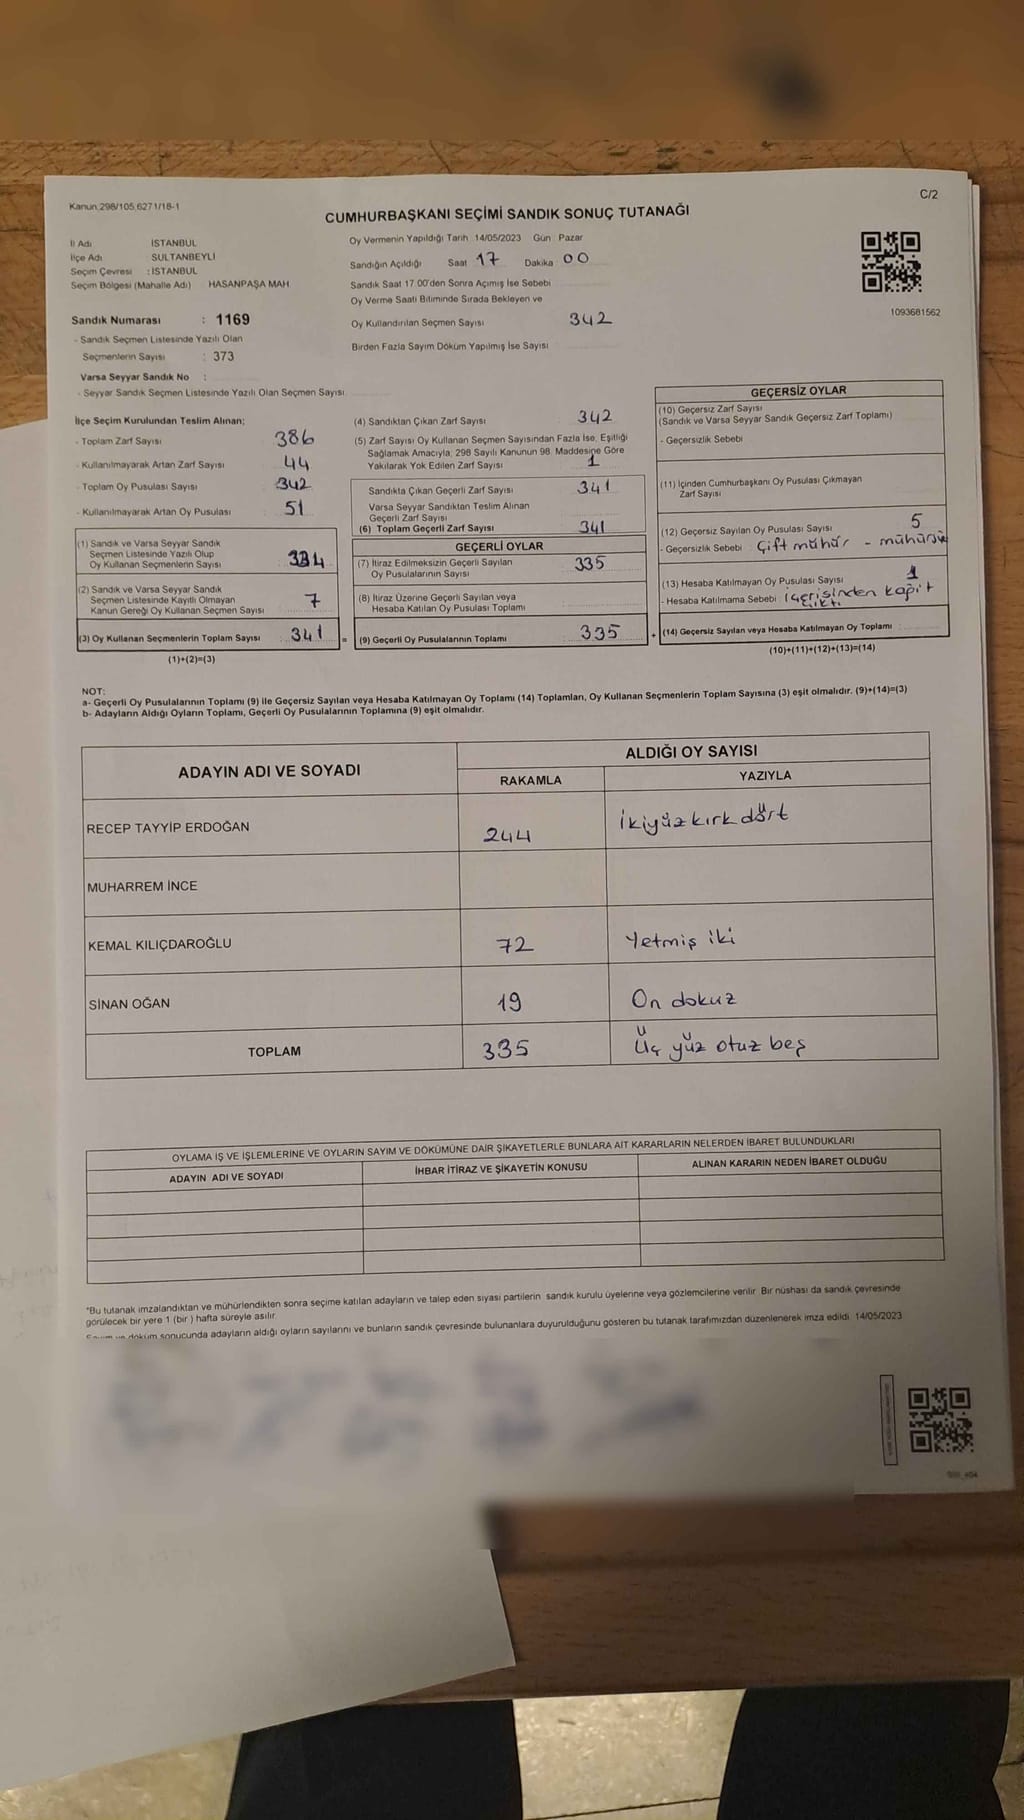 Kanun,298/105,6271/18-1
C/2
CUMHURBAŞKANI SEÇİMİ SANDIK SONUÇ TUTANAĞI
İl Adı İSTANBUL
İlçe Adı SULTANBEYLİ
Seçim Çevresi : İSTANBUL
Seçim Bölgesi (Mahalle Adı) HASANPAŞA MAH.
Sandık Numarası : 1169
- Sandık Seçmen Listesinde Yazılı Olan
Seçmenlerin Sayısı : 373
Varsa Seyyar Sandık No :
- Seyyar Sandık Seçmen Listesinde Yazılı Olan Seçmen Sayısı
Oy Vermenin Yapıldığı Tarih 14/05/2023 Gün Pazar
Sandığın Açıldığı Saat 17 Dakika 00
Sandık Saat 17 00'den Sonra Açımış İse Sebebi
Oy Verme Saati Bitiminde Sırada Bekleyen ve
Oy Kullandırılan Seçmen Sayısı 342
Birden Fazla Sayım Döküm Yapılmış İse Sayısı
1093681562
İlçe Seçim Kurulundan Teslim Alınan;
- Toplam Zarf Sayısı 386
- Kullanılmayarak Artan Zarf Sayısı 44
- Toplam Oy Pusulası Sayısı 342
- Kullanılmayarak Artan Oy Pusulası 51
(1) Sandık ve Varsa Seyyar Sandık
Seçmen Listesinde Yazılı Olup
Oy Kullanan Seçmenlerin Sayısı 334
(2) Sandık ve Varsa Seyyar Sandık
Seçmen Listesinde Kayıtlı Olmayan
Kanun Gereği Oy Kullanan Seçmen Sayısı 7
(3) Oy Kullanan Seçmenlerin Toplam Sayısı 341 =
(1)+(2)=(3)
(4) Sandıktan Çıkan Zarf Sayısı 342
(5) Zarf Sayısı Oy Kullanan Seçmen Sayısından Fazla İse, Eşitliği
Sağlamak Amacıyla, 298 Sayılı Kanunun 98. Maddesine Göre
Yakılarak Yok Edilen Zarf Sayısı 1
Sandıkta Çıkan Geçerli Zarf Sayısı 341
Varsa Seyyar Sandıktan Teslim Alınan
Geçerli Zarf Sayısı
(6) Toplam Geçerli Zarf Sayısı 341
GEÇERLİ OYLAR
(7) İtiraz Edilmeksizin Geçerli Sayılan
Oy Pusulalarının Sayısı 335
(8) İtiraz Üzerine Geçerli Sayılan veya
Hesaba Katılan Oy Pusulası Toplamı
(9) Geçerli Oy Pusulalarının Toplamı 335 +
GEÇERSİZ OYLAR
(10) Geçersiz Zarf Sayısı
(Sandık ve Varsa Seyyar Sandık Geçersiz Zarf Toplamı)
- Geçersizlik Sebebi
(11) İçinden Cumhurbaşkanı Oy Pusulası Çıkmayan
Zarf Sayısı
(12) Geçersiz Sayılan Oy Pusulası Sayısı 5
- Geçersizlik Sebebi Çift mühür - mühürsüz
(13) Hesaba Katılmayan Oy Pusulası Sayısı 1
- Hesaba Katılmama Sebebi İçerisinden kağıt
çıktı
(14) Geçersiz Sayılan veya Hesaba Katılmayan Oy Toplamı
(10)+(11)+(12)+(13)=(14)
NOT:
a- Geçerli Oy Pusulalarının Toplamı (9) ile Geçersiz Sayılan veya Hesaba Katılmayan Oy Toplamı (14) Toplamları, Oy Kullanan Seçmenlerin Toplam Sayısına (3) eşit olmalıdır. (9)+(14)=(3)
b- Adayların Aldığı Oyların Toplamı, Geçerli Oy Pusulalarının Toplamına (9) eşit olmalıdır.
ADAYIN ADI VE SOYADI
ALDIĞI OY SAYISI
RAKAMLA YAZIYLA
RECEP TAYYİP ERDOĞAN 244 İkiyüzkırkdört
MUHARREM İNCE
KEMAL KILIÇDAROĞLU 72 Yetmiş iki
SİNAN OĞAN 19 On dokuz
TOPLAM 335 Üç yüz otuz beş
OYLAMA İŞ VE İŞLEMLERİNE VE OYLARIN SAYIM VE DÖKÜMÜNE DAİR ŞİKAYETLERLE BUNLARA AİT KARARLARIN NELERDEN İBARET BULUNDUKLARI
ADAYIN ADI VE SOYADI İHBAR İTİRAZ VE ŞİKAYETİN KONUSU ALINAN KARARIN NEDEN İBARET OLDUĞU
*Bu tutanak imzalandıktan ve mühürlendikten sonra seçime katılan adayların ve talep eden siyasi partilerin sandık kurulu üyelerine veya gözlemcilerine verilir. Bir nüshası da sandık çevresinde
görülecek bir yere 1 (bir ) hafta süreyle asılır.
Sayım ve döküm sonucunda adayların aldığı oyların sayılarını ve bunların sandık çevresinde bulunanlara duyurulduğunu gösteren bu tutanak tarafımızdan düzenlenerek imza edildi. 14/05/2023